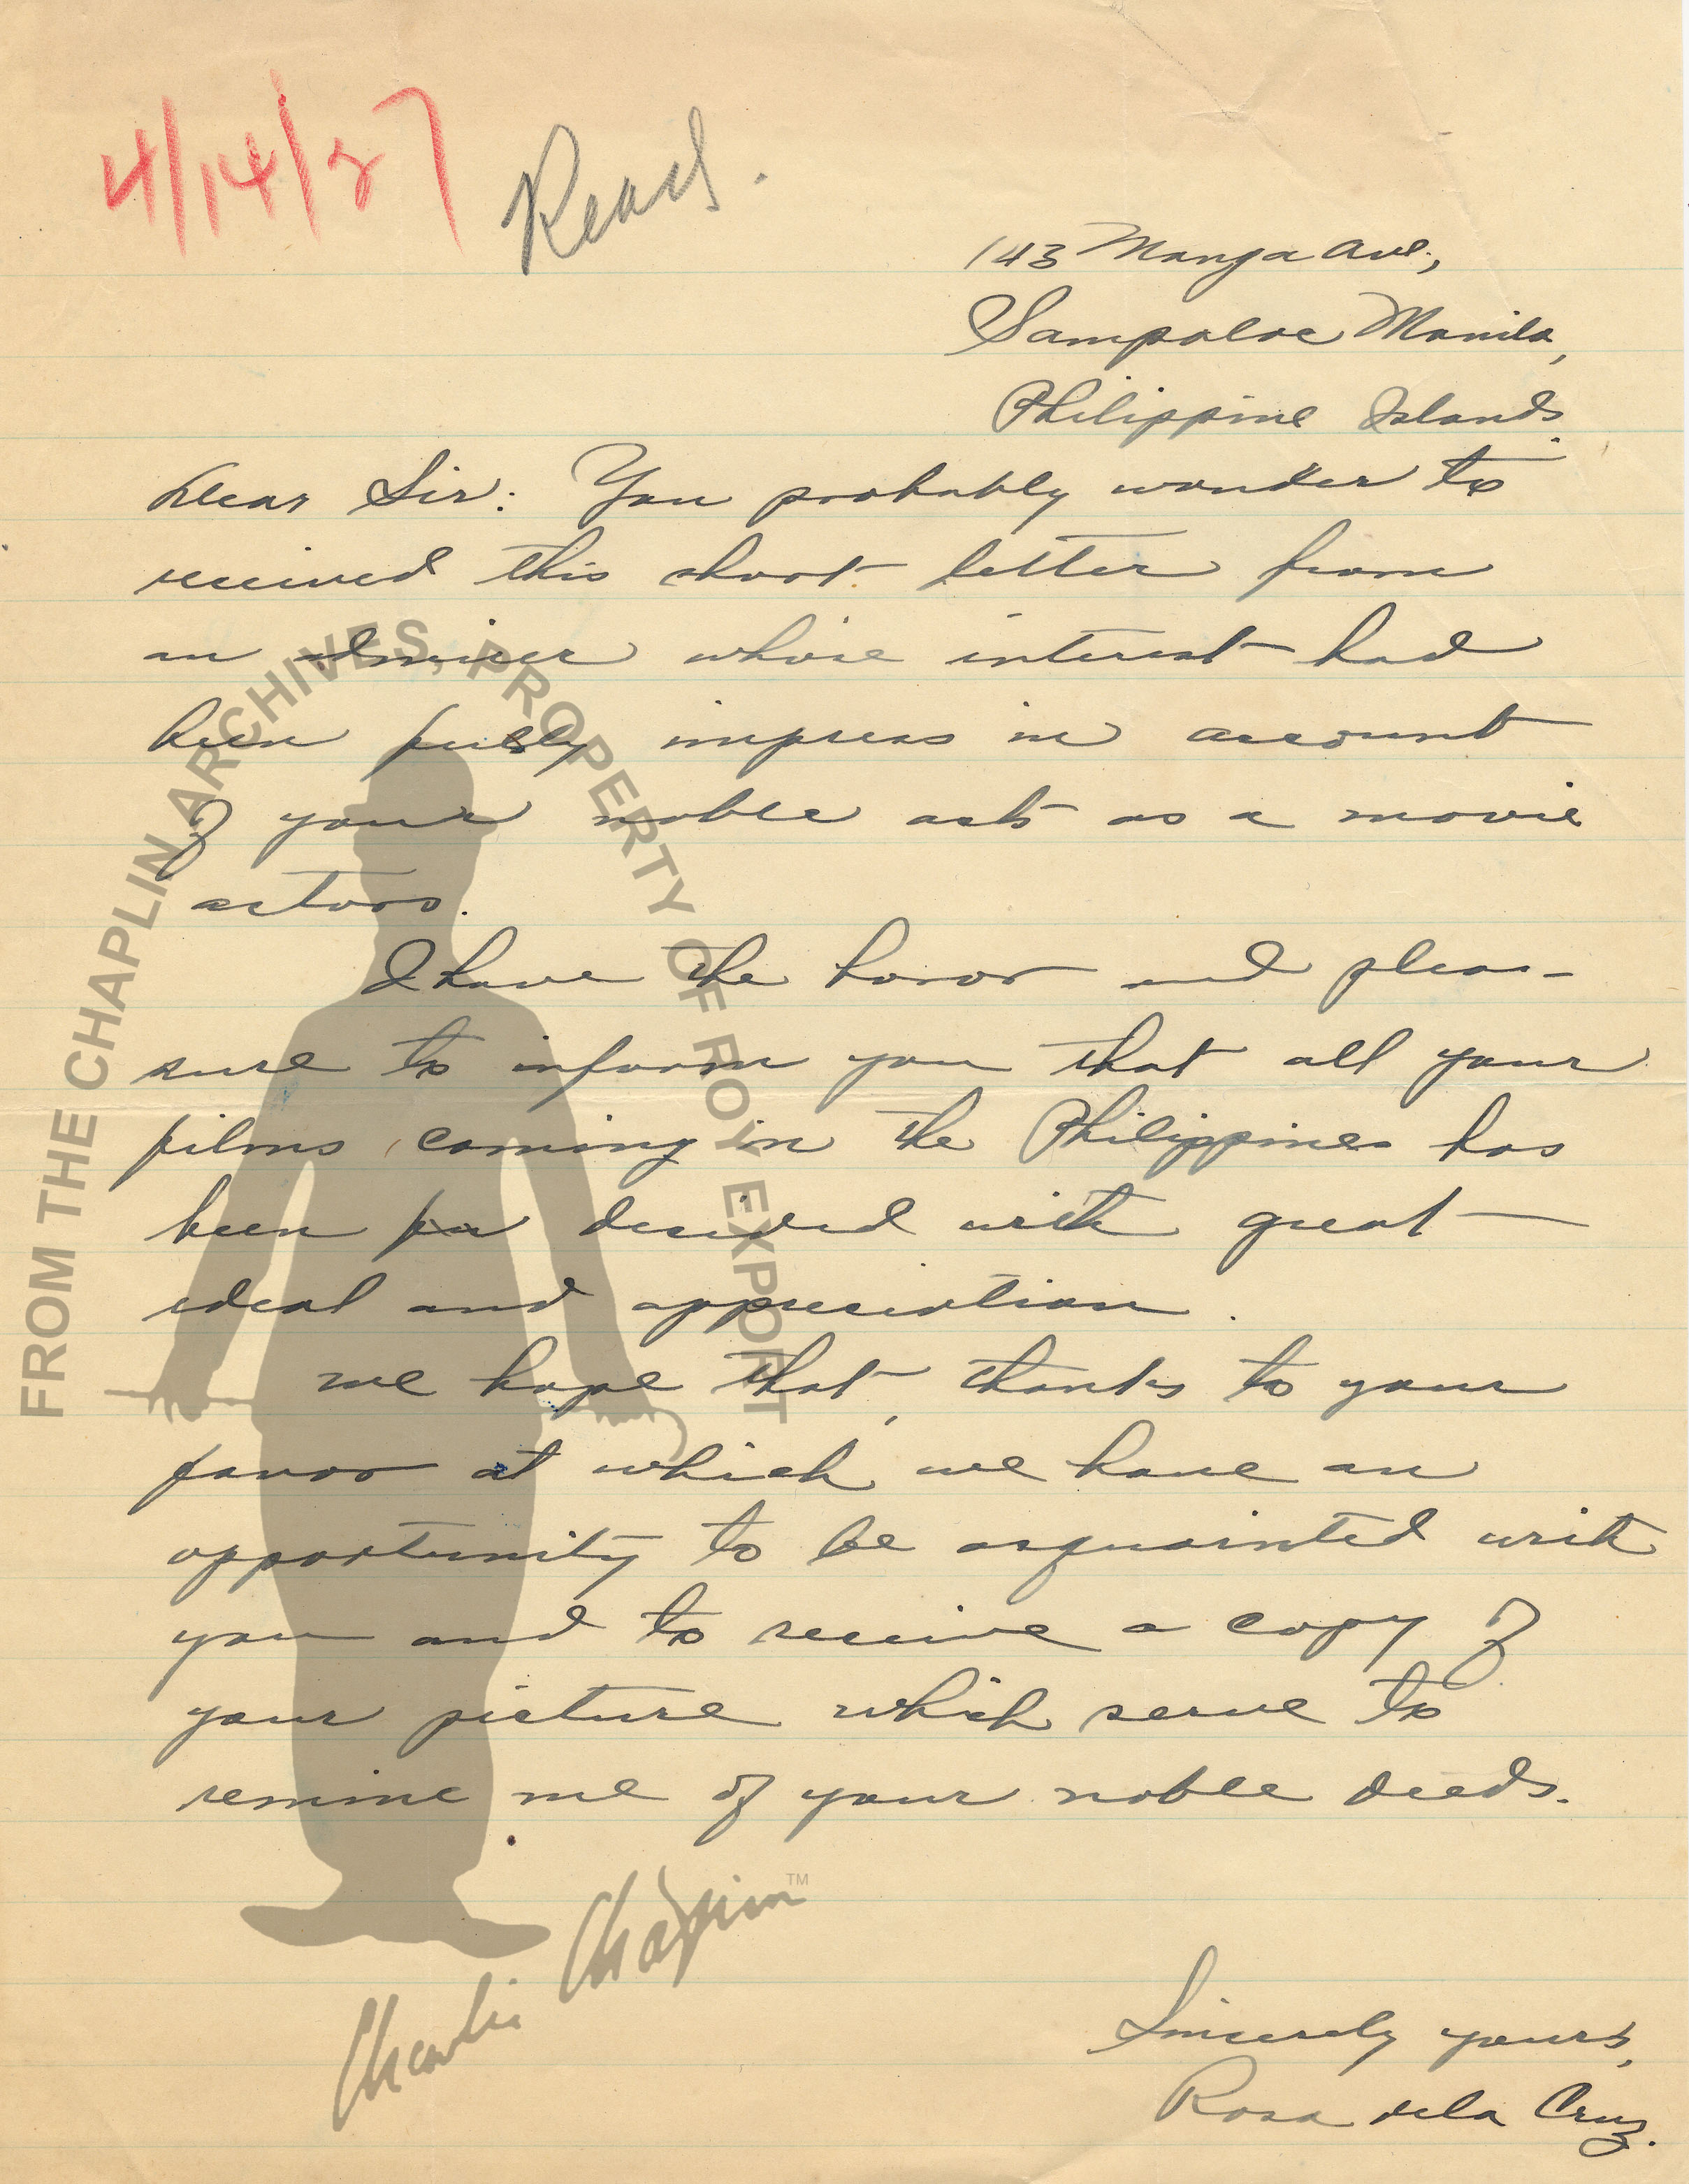 4/14/27 Read.
143 Manga Ave.,
Sampaloc Manila,
Philippine Islands.
Dear Sir: You probably wonder to
received this short letter from
an admirer whose interest had
been fully impress in account
of your noble acts as a movie
actors.
I have the honor and plea-
sure to inform you that all your
films coming in the Philippines has
been decided with great
ideal and appreciation.
We hope that, thanks to your
favor at which we have an
opportunity to be acquainted with
you and to receive a copy of
your picture which serve to
remine me of your noble deeds.
Sincerely yours,
Rosa dela Cruz.
FROM THE CHAPLIN ARCHIVES, PROPERTY OF ROY EXPORT
Charlie Chaplin™